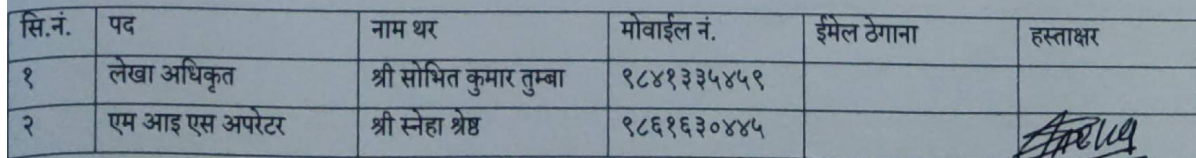 सि.नं. पद नाम थर मोवाईल नं. ईमेल ठेगाना हस्ताक्षर
१ लेखा अधिकृत श्री सोभित कुमार तुम्बा ९८४१३३५४५९
२ एम आइ एस अपरेटर श्री स्नेहा श्रेष्ठ ९८६१६३०४४५